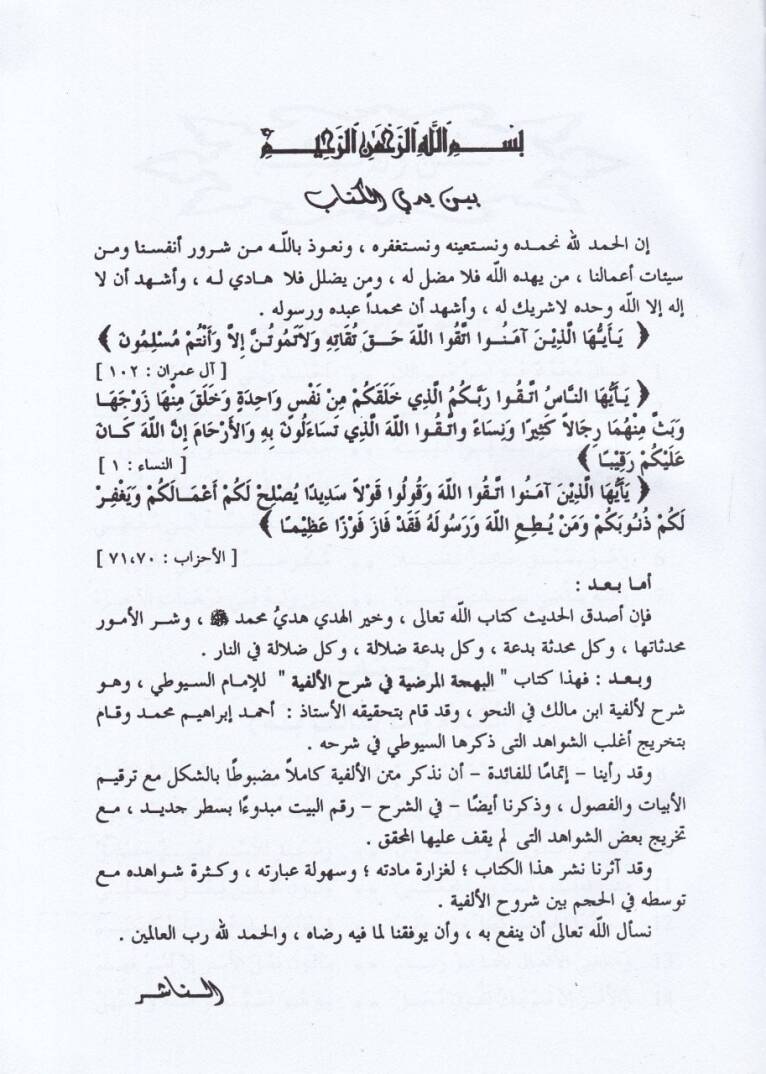 بسم الله الرحمن الرحيم
بين يدي الكتاب
إن الحمد لله نحمده ونستعينه ونستغفره ، ونعوذ بالله من شرور أنفسنا ومن
سيئات أعمالنا ، من يهده الله فلا مضل له ، ومن يضلل فلا هادي له ، وأشهد أن لا
إله إلا الله وحده لاشريك له ، وأشهد أن محمداً عبده ورسوله .
﴿ يَـأَيُّهَا الَّذِيْـنَ آمَنُـوا اتَّقُوا اللهَ حَـقَ تُقَاتِهِ وَلاَتَمُوتُـنَّ إِلاَّ وَأَنْتُم مُسْلِمُونَ ﴾
[ آل عمران : ١٠٢ ]
﴿ يَـأَيُّهَا النَّاسُ اتَّـقُوا رَبَّـكُمُ الَّذِي خَلَقَكُمْ مِنْ نَفْسٍ وَاحِدَةٍ وَخَلَقَ مِنْهَا زَوْجَهَـا
وَبَثَّ مِنْهُمَا رِجَالاً كَثِيرًا وَنِسَاءً واتَّـقُوا اللهَ الَّذِي تَسَاءَلُونَ بِهِ وَالأَرْحَامَ إِنَّ اللهَ كَـانَ
عَلَيْكُمْ رَقِيْبًـا ﴾
[ النساء : ١ ]
﴿ يَأَيُّهَا الَّذِينَ آمَنُوا اتَّقُوا اللهَ وَقُولُوا قَوْلاً سَدِيدًا يُصْلِحْ لَكُمْ أَعْمَـالَكُمْ وَيَغْفِـرْ
لَكُمْ ذُنُوبَكُمْ وَمَنْ يُطِـعِ اللهَ وَرَسُولَهُ فَقَدْ فَازَ فَوْزًا عَظِيْمًـا ﴾
[ الأحزاب : ٧١،٧٠ ]
أمـا بـعـد :
فإن أصدق الحديث كتاب الله تعالى ، وخير الهدي هديُ محمد ﷺ ، وشـر الأمـور
محدثاتها ، وكل محدثة بدعة ، وكل بدعة ضلالة ، وكل ضلالة في النار .
وبـعـد : فهذا كتاب " البهجة المرضية في شرح الألفية " للإمام السـيوطي ، وهـو
شرح لألفية ابن مالك في النحو ، وقد قام بتحقيقه الأستاذ : أحمد إبراهيم محمد وقـام
بتخريج أغلب الشواهد التى ذكرها السيوطي في شرحه .
وقد رأينا – إتمامًا للفائدة – أن نذكر متن الألفية كاملاً مضبوطًا بالشكل مع ترقيـم
الأبيات والفصول ، وذكرنا أيضًا – في الشرح – رقم البيت مبدوءًا بسطر جديـد ، مـع
تخريج بعض الشواهد التى لم يقف عليها المحقق .
وقد آثرنا نشر هذا الكتاب ؛ لغزارة مادته ؛ وسهولة عبارته ، وكـثرة شـواهده مـع
توسطه في الحجم بين شروح الألفية .
نسأل الله تعالى أن ينفع به ، وأن يوفقنا لما فيه رضاه ، والحمد لله رب العالمين .
الـنـاشـر